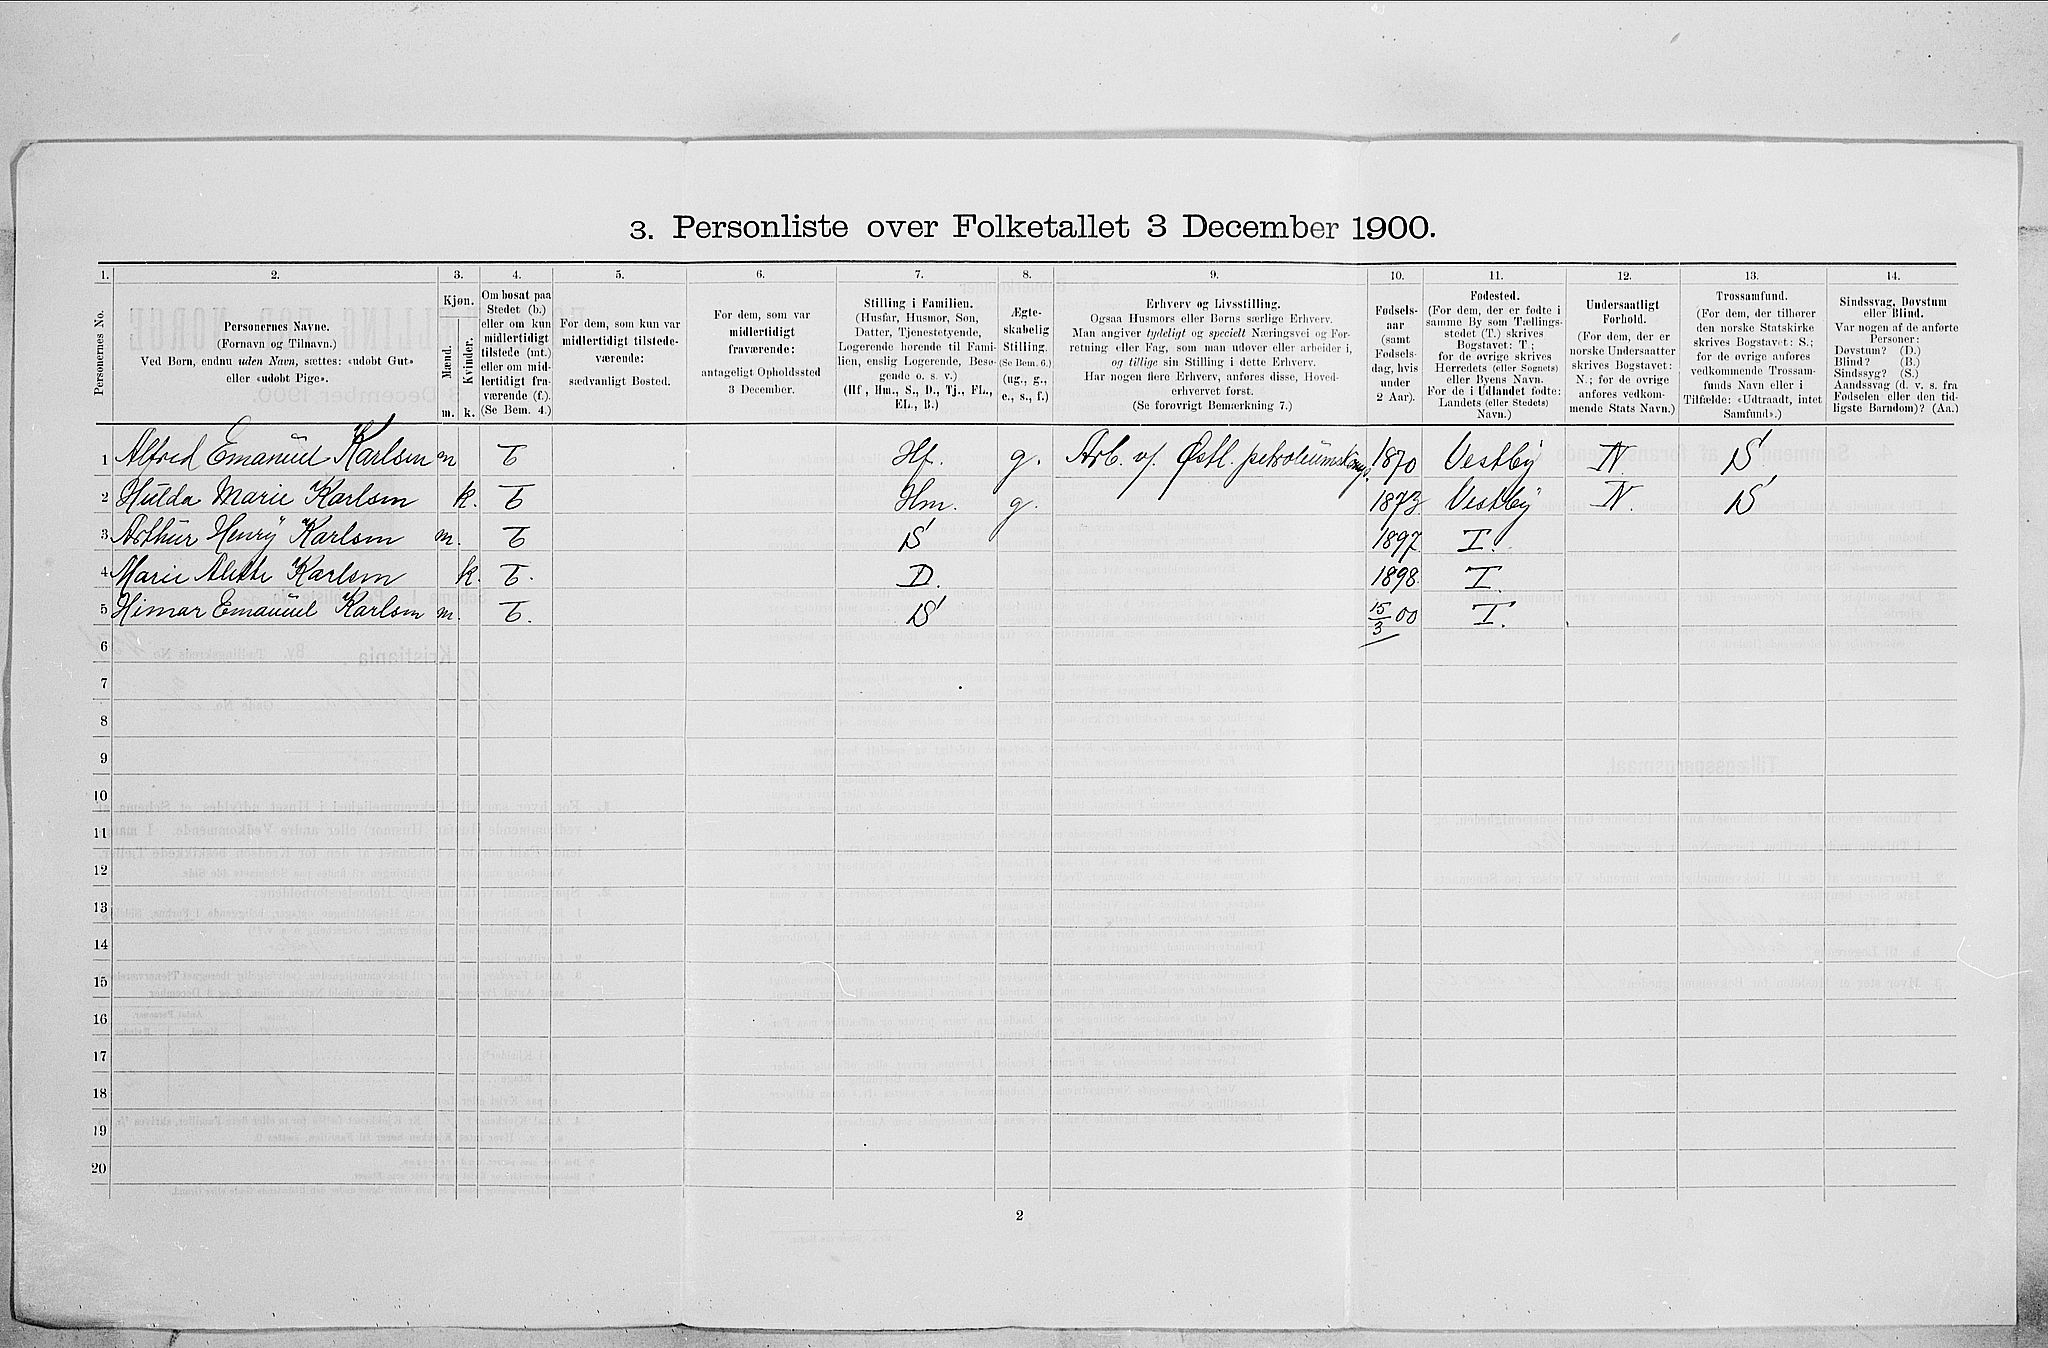 3. Personliste over Folketallet 3 December 1900.
1. 2. 3. 4. 5. 6. 7. 8. 9. 10. 11. 12. 13. 14.
Personernes No.
Personernes Navne.
(Fornavn og Tilnavn.)
Ved Børn, endnu uden Navn, sættes: «udøbt Gut»
eller «udøbt Pige».
Kjøn.
Mænd.
Kvinder.
m. k.
Om bosat paa
Stedet (b.)
eller om kun
midlertidigt
tilstede (mt.)
eller om mid-
lertidigt fra-
værende (f.).
(Se Bem. 4.)
For dem, som kun var
midlertidigt tilstede-
værende:
sædvanligt Bosted.
For dem, som var
midlertidigt
fraværende:
antageligt Opholdssted
3 December.
Stilling i Familien.
(Husfar, Husmor, Søn,
Datter, Tjenestetyende,
Logerende hørende til Fami-
lien, enslig Logerende, Besø-
gende o. s. v.)
(Hf., Hm., S., D., Tj., FL.,
EL., B.)
Ægte-
skabelig
Stilling.
(Se Bem. 6.)
(ug., g.,
e., s., f.)
Erhverv og Livsstilling.
Ogsaa Husmors eller Børns særlige Erhverv.
Man angiver tydeligt og specielt Næringsvei og For-
retning eller Fag, som man udøver eller arbeider i,
og tillige sin Stilling i dette Erhverv.
Har nogen flere Erhverv, anføres disse, Hoved-
erhvervet først.
(Se forøvrigt Bemærkning 7.)
Fødsels-
aar
(samt
Fødsels-
dag, hvis
under
2 Aar).
Fødested.
(For dem, der er fødte i
samme By som Tællings-
stedet (T.) skrives
Bogstavet: T;
for de øvrige skrives
Herredets (eller Sognets)
eller Byens Navn.
For de i Udlandet fødte:
Landets (eller Stedets)
Navn.)
Undersaatligt
Forhold.
(For dem, der er
norske Undersaatter
skrives Bogstavet:
N.; for de øvrige
anføres vedkom-
mende Stats Navn.)
Trossamfund.
(For dem, der tilhører
den norske Statskirke
skrives Bogstavet: S.;
for de øvrige anføres
vedkommende Trossam-
funds Navn eller i
Tilfælde: «Udtraadt, intet
Samfund».)
Sindssvag, Døvstum
eller Blind.
Var nogen af de anførte
Personer:
Døvstum? (D.)
Blind? (B.)
Sindssyg? (S.)
Aandssvag (d. v. s. fra
Fødselen eller den tid-
ligste Barndom)? (Aa.)
1 Alfred Emanuel Karlsen m b Hf. g. Arb. v/ Østl. petroleumskomp. 1870 Vestby N S
2 Hulda Marie Karlsen k. b Hm. g. 1873 Vestby N. S
3 Arthur Henry Karlsen m. b S 1897 T.
4 Marie Alette Karlsen k. b. D. 1898 T.
5 Himar Emanuel Karlsen m. b. S 15/3 00 T.
6
7
8
9
10
11
12
13
14
15
16
17
18
19
20
2